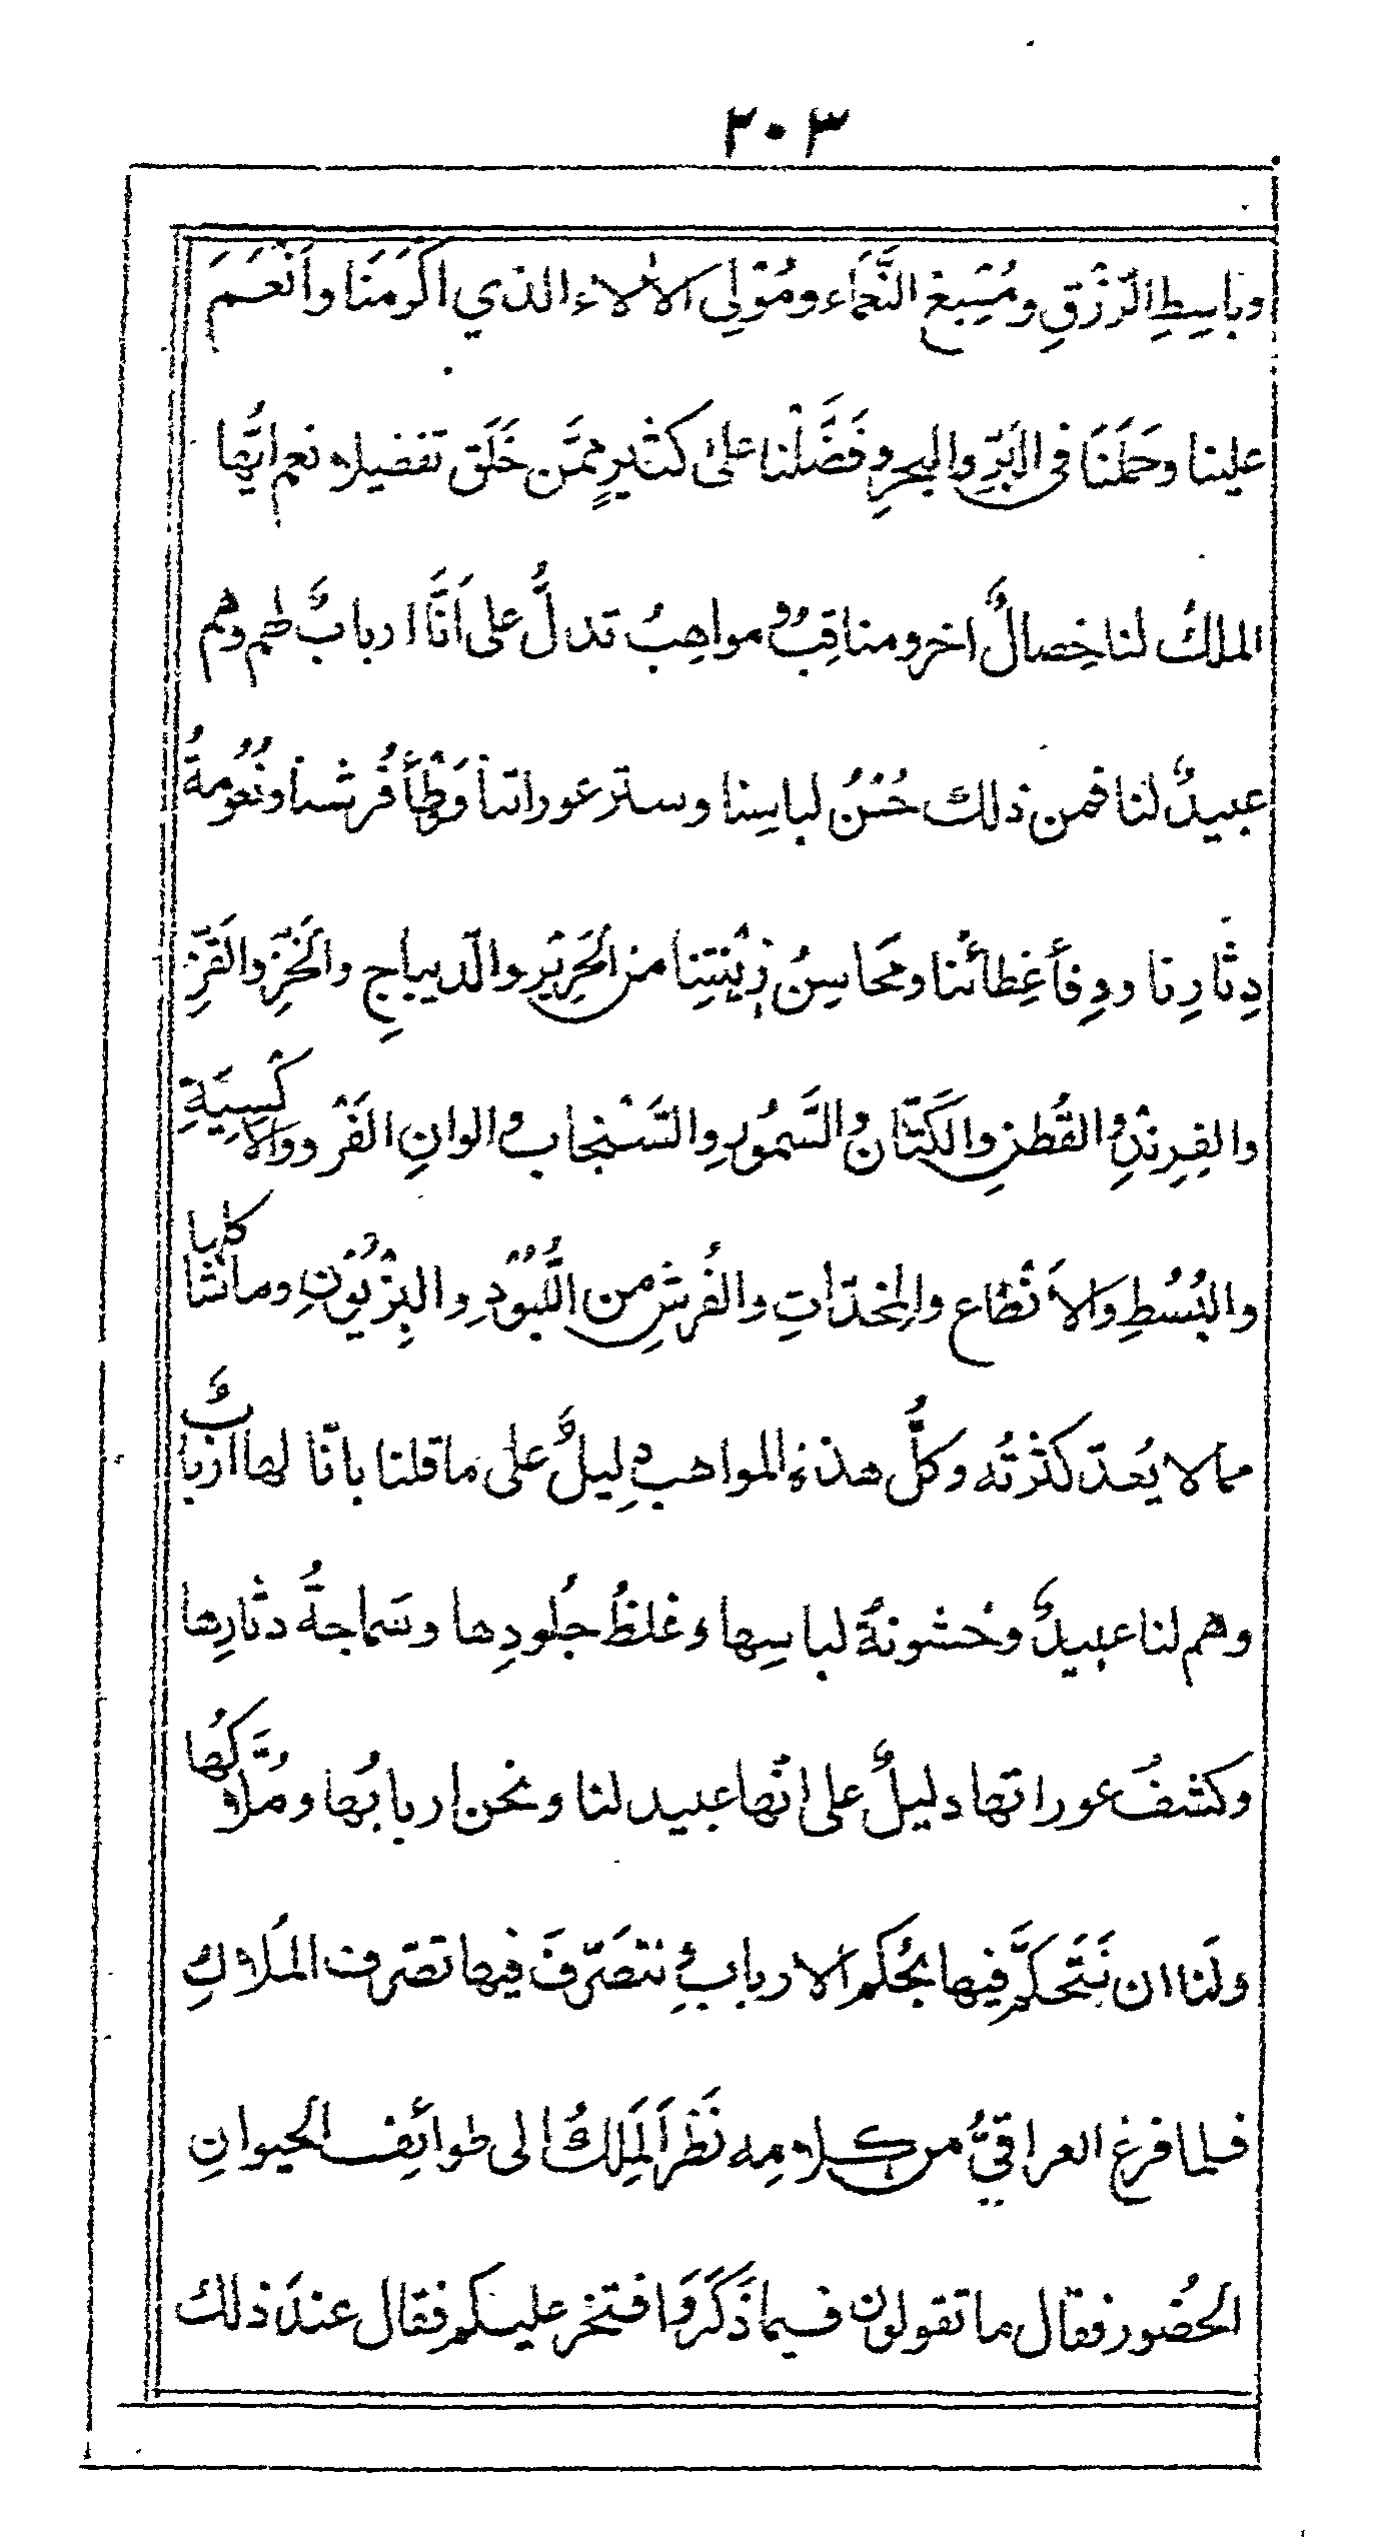 ٢٠٣
وباسِطِ الرِّزْقِ ومُسْبِغِ النَّعْمَاء ومُوْلِى الاٰلاءِ الذي اكْرَمَنَا واَنْعَمَ
علينا وحَمَلَنَا فى البَرِّ والبحرِ وفَضَّلْنا على كثيرٍ ممَّن خَلَق تفضيلا نعم ايُّها
الملكُ لنا خِصالٌ اخر ومناقِبُ ومواهِبُ تدلُّ على اَنَّا اربابٌ لهم وهم
عبيدٌ لنا فمن ذلك حُسْنُ لباسِنا وستر عوراتنا ووَطْأُ فُرشنا ونُعُومةُ
دِثارِنا ودِفأ غِطائنا ومَحاسِنُ زِيْنتِنا من الحَرِيْرِ والدّيباجِ والخَزِّ والقَزِّ
والفِرِندِ والقُطنِ والكَتَّان والسَّمُورِ والسَّنْجاب والوانِ الفَرْو والاكْسِيَةِ
والبُسُطِ والاَنْطاع والمِخدّاتِ والفُرشِ من اللُّبُوْدِ والبِزْيُوْنِ وما شاكلها
مما لا يُعدّ كثرتُه وكلُّ هذه المواهب دِليلٌ على ما قلنا بانّا لها اربابٌ
وهم لنا عبيدٌ وخشونةُ لباسِها وغلظُ جلُودِها وسَماجةُ دثارِها
وكشفُ عوراتها دليلٌ على انّها عبيد لنا ونحن اربابُها ومُلّاكُها
ولَنا ان نَتَحكَّم فيها بحُكم الاربابِ ونتصَرّفَ فيها تصَرف المُلاكِ
فلما فرغ العراقيُّ من كلامِه نَظَر المَلِكُ الى طوائِف الحيوانِ
الحضُور فقال ما تقولون فيما ذَكَرَ وافتخر عليكم فقال عندَ ذلك